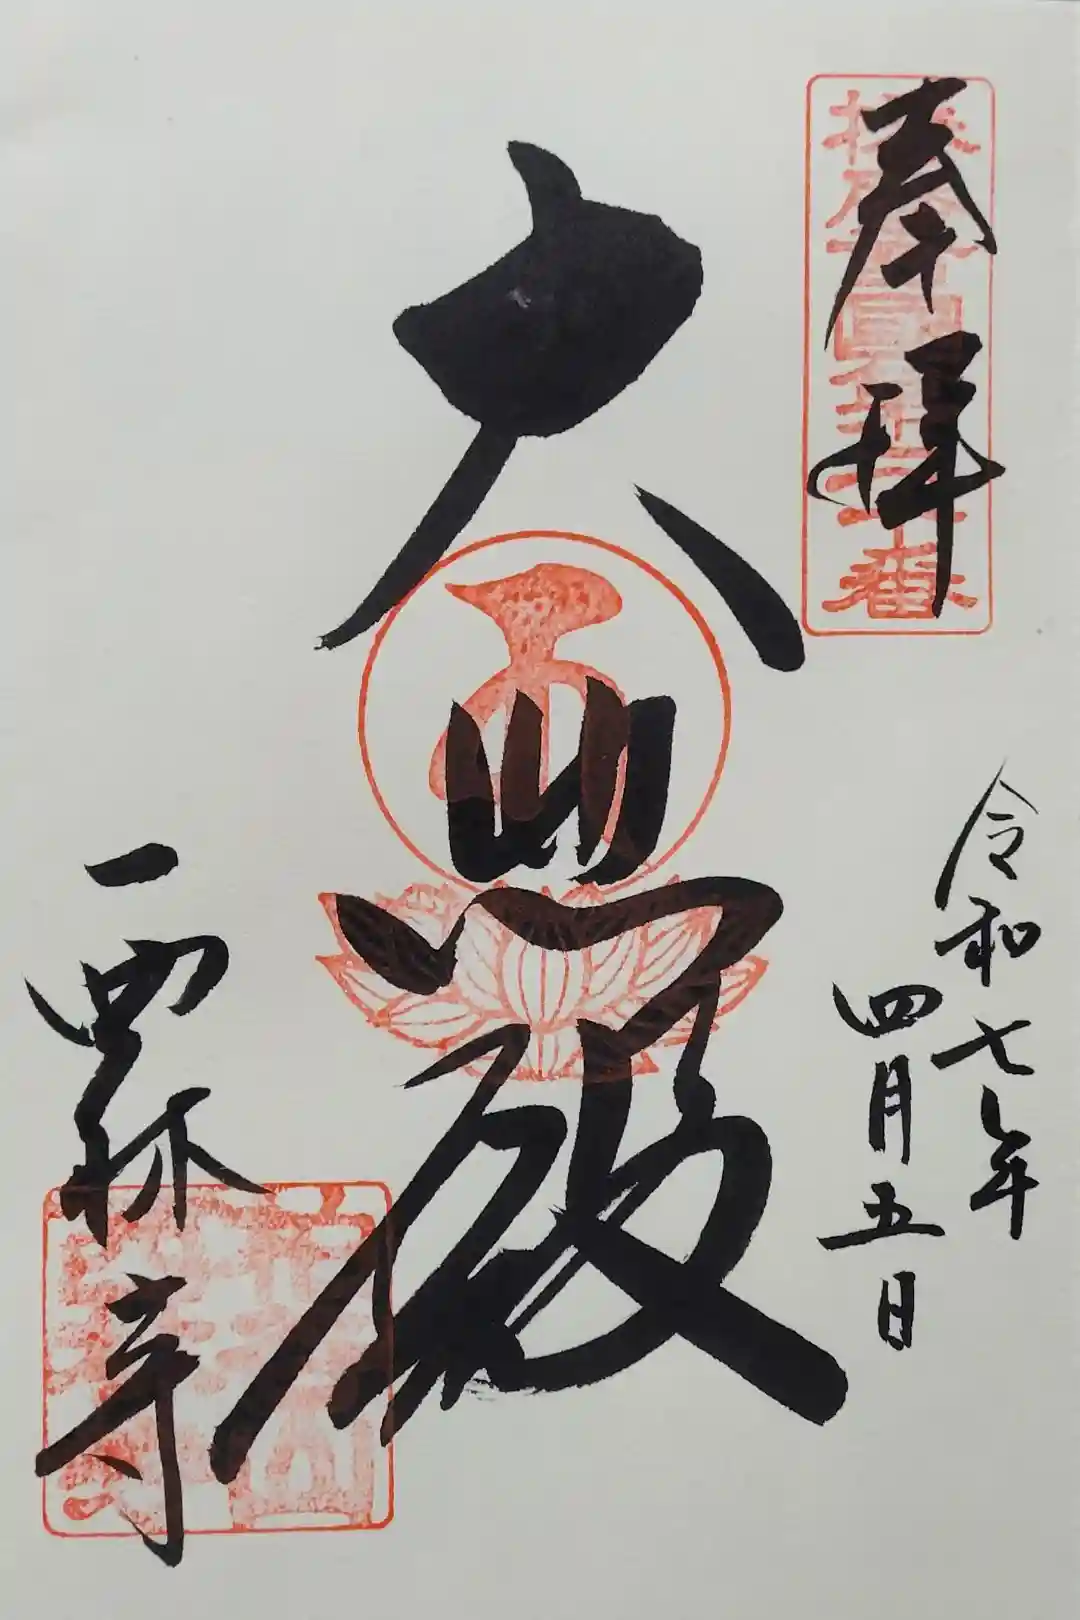 奉拝
令和七年
四月五日
大悲殿
西林寺